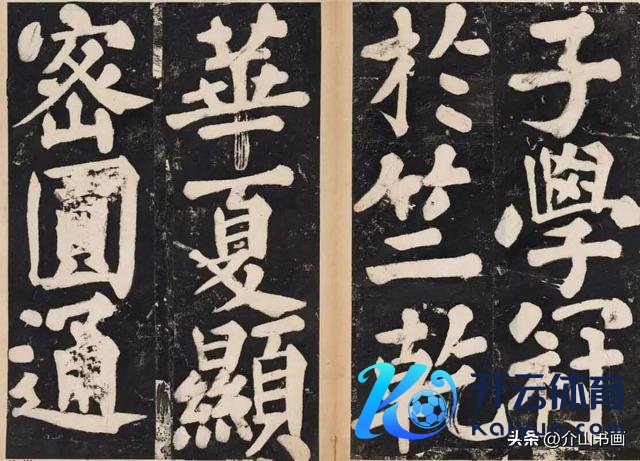 子學冠
於竺乾
華夏顯
密圓通
开云体育
头条@介山书画